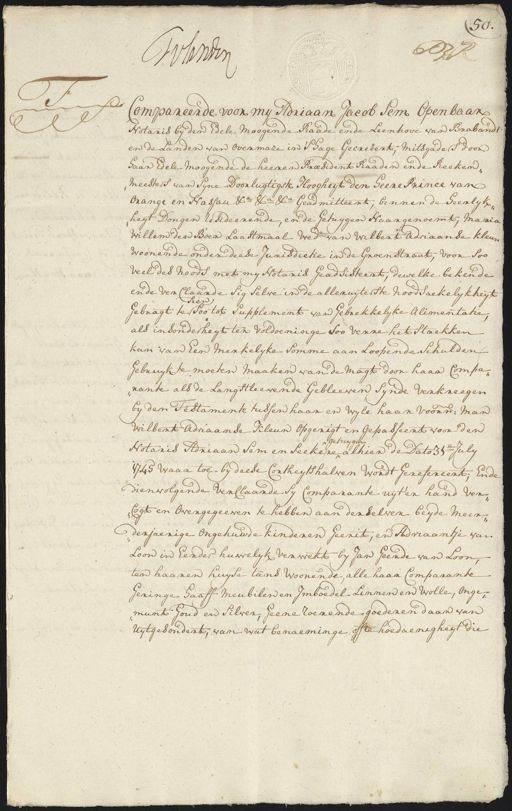 50.
F
Compareerde voor my Adriaan Jacob Sem Openbaar
Notaris by den Edele Moogende Raade ende Leenhove van Brabandt
en de Landen van Overmaze in S'Hage Geresideert, Mitsgaders door
haar Edele Moogende de heeren President Raaden en de Reeken„
„Meesters van Syne Doorlugtigste Hoogheyt den Heere Prince van
Orange en Nassau &ca &ca &ca Geadmitteert, binnen de Heerlyk„
heyt Dongen Resideerende, en de Getuygen Naargenoemt, Maria
Willem den Boer Laast maal Wede van Wilbert Adriaanse Kleun
woonende onder deese Jurisdictie in de Groenstraat, voor Soo
veel des Noodt met my Notaris Geadsisteert, dewelke bekende
ende verclaarde Sig Selve in de alleruyterste Noodsaekelykheyt
Gebragt te Sien Soo tot Supplement van Gebrekkelyke Alimentatie,
als insonderheyt ter Voldoeninge Soo verre het Strekken
kan van Een Merkelyke Somme aan Loopende Schulden
Gebruyk te moeten Maaken van de Magt door haar Compa„
„rante als de Langstleevende Gebleeven Synde verkreegen
by den Testamente tussen haar en Wyle haar voorn: Man
Wilbert Adriaanse Kleun Opgerigt en Gepasseert voor den
Notaris Adriaan Sem en Seekere getuygen alhier de Dato 31en July
1745 waar toe by deese Cortheytshalven wordt Gerefereert, Ende
dienvolgende verclaarde Sy Comparante uyter hand ver„
„cogt en Overgegeeven te hebben aan derselver beyde Meer„
„derjaerige Ongehuwde kinderen Gerrit, en Adriaantje van
Loon in Eerder huwelyk verwekt by Jan Geerde van Loon,
ten haaren huyse tans woonende, alle haar Comparante
Geringe Haaff Meubilen en Imboedel Linnen en Wolle, Onge„
„munt Goud en Silver, Geene roerende goederen daar van
Uytgesondert, van wat benaeminge offte hoedaenigheyt die